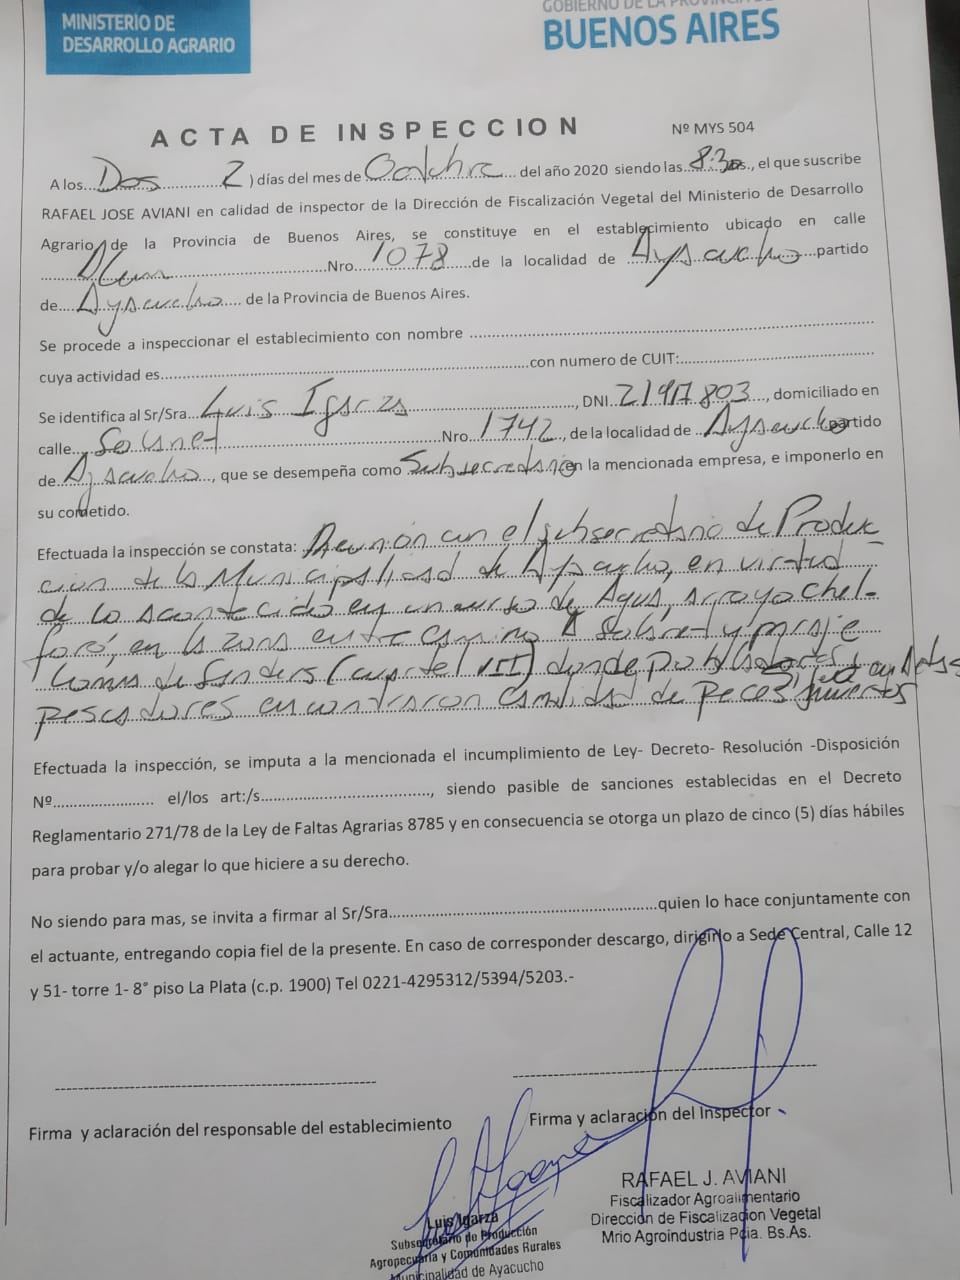 MINISTERIO DE
DESARROLLO AGRARIO
GOBIERNO DE LA PROVINCIA DE
BUENOS AIRES
ACTA DE INSPECCION
Nº MYS 504
A los....Dos..............2 ) días del mes de Octubre.... del año 2020 siendo las 8:30 hs., el que suscribe
RAFAEL JOSE AVIANI en calidad de inspector de la Dirección de Fiscalización Vegetal del Ministerio de Desarrollo
Agrario de la Provincia de Buenos Aires, se constituye en el establecimiento ubicado en calle
...............................Nro....1078......de la localidad de Ayacucho....partido
de....Ayacucho.... de la Provincia de Buenos Aires.
Se procede a inspeccionar el establecimiento con nombre ..........................
cuya actividad es...........................con numero de CUIT:..........................
Se identifica al Sr/Sra...Luis Igarza.................., DNI..21917803..., domiciliado en
calle.....................Nro...1742.., de la localidad de ..Ayacucho partido
de Ayacucho..., que se desempeña como Subsecretario en la mencionada empresa, e imponerlo en
su cometido.
Efectuada la inspección se constata: Reunión con el subsecretario de Produc
ción de la Municipalidad de Ayacucho, en virtud
de lo acontecido en un curso de Agua, arroyo chel-
foró, en la zona entre camino a Solanet y paraje
Lomas de (cuartel VIII) donde pobladores y
pescadores encontraron cantidad de peces muertos
Efectuada la inspección, se imputa a la mencionada el incumplimiento de Ley- Decreto- Resolución -Disposición
Nº....................... el/los art:/s..................................., siendo pasible de sanciones establecidas en el Decreto
Reglamentario 271/78 de la Ley de Faltas Agrarias 8785 y en consecuencia se otorga un plazo de cinco (5) días hábiles
para probar y/o alegar lo que hiciere a su derecho.
No siendo para mas, se invita a firmar al Sr/Sra..........................................quien lo hace conjuntamente con
el actuante, entregando copia fiel de la presente. En caso de corresponder descargo, dirigirlo a Sede Central, Calle 12
y 51- torre 1- 8° piso La Plata (c.p. 1900) Tel 0221-4295312/5394/5203.-
Firma y aclaración del responsable del establecimiento
Firma y aclaración del Inspector
Luis Igarza
Subsecretario de Producción
Agropecuaria y Comunidades Rurales
Municipalidad de Ayacucho
RAFAEL J. AVIANI
Fiscalizador Agroalimentario
Dirección de Fiscalizacion Vegetal
Mrio Agroindustria Pcia. Bs.As.